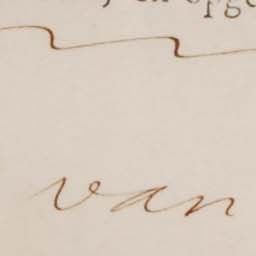 en opge
van